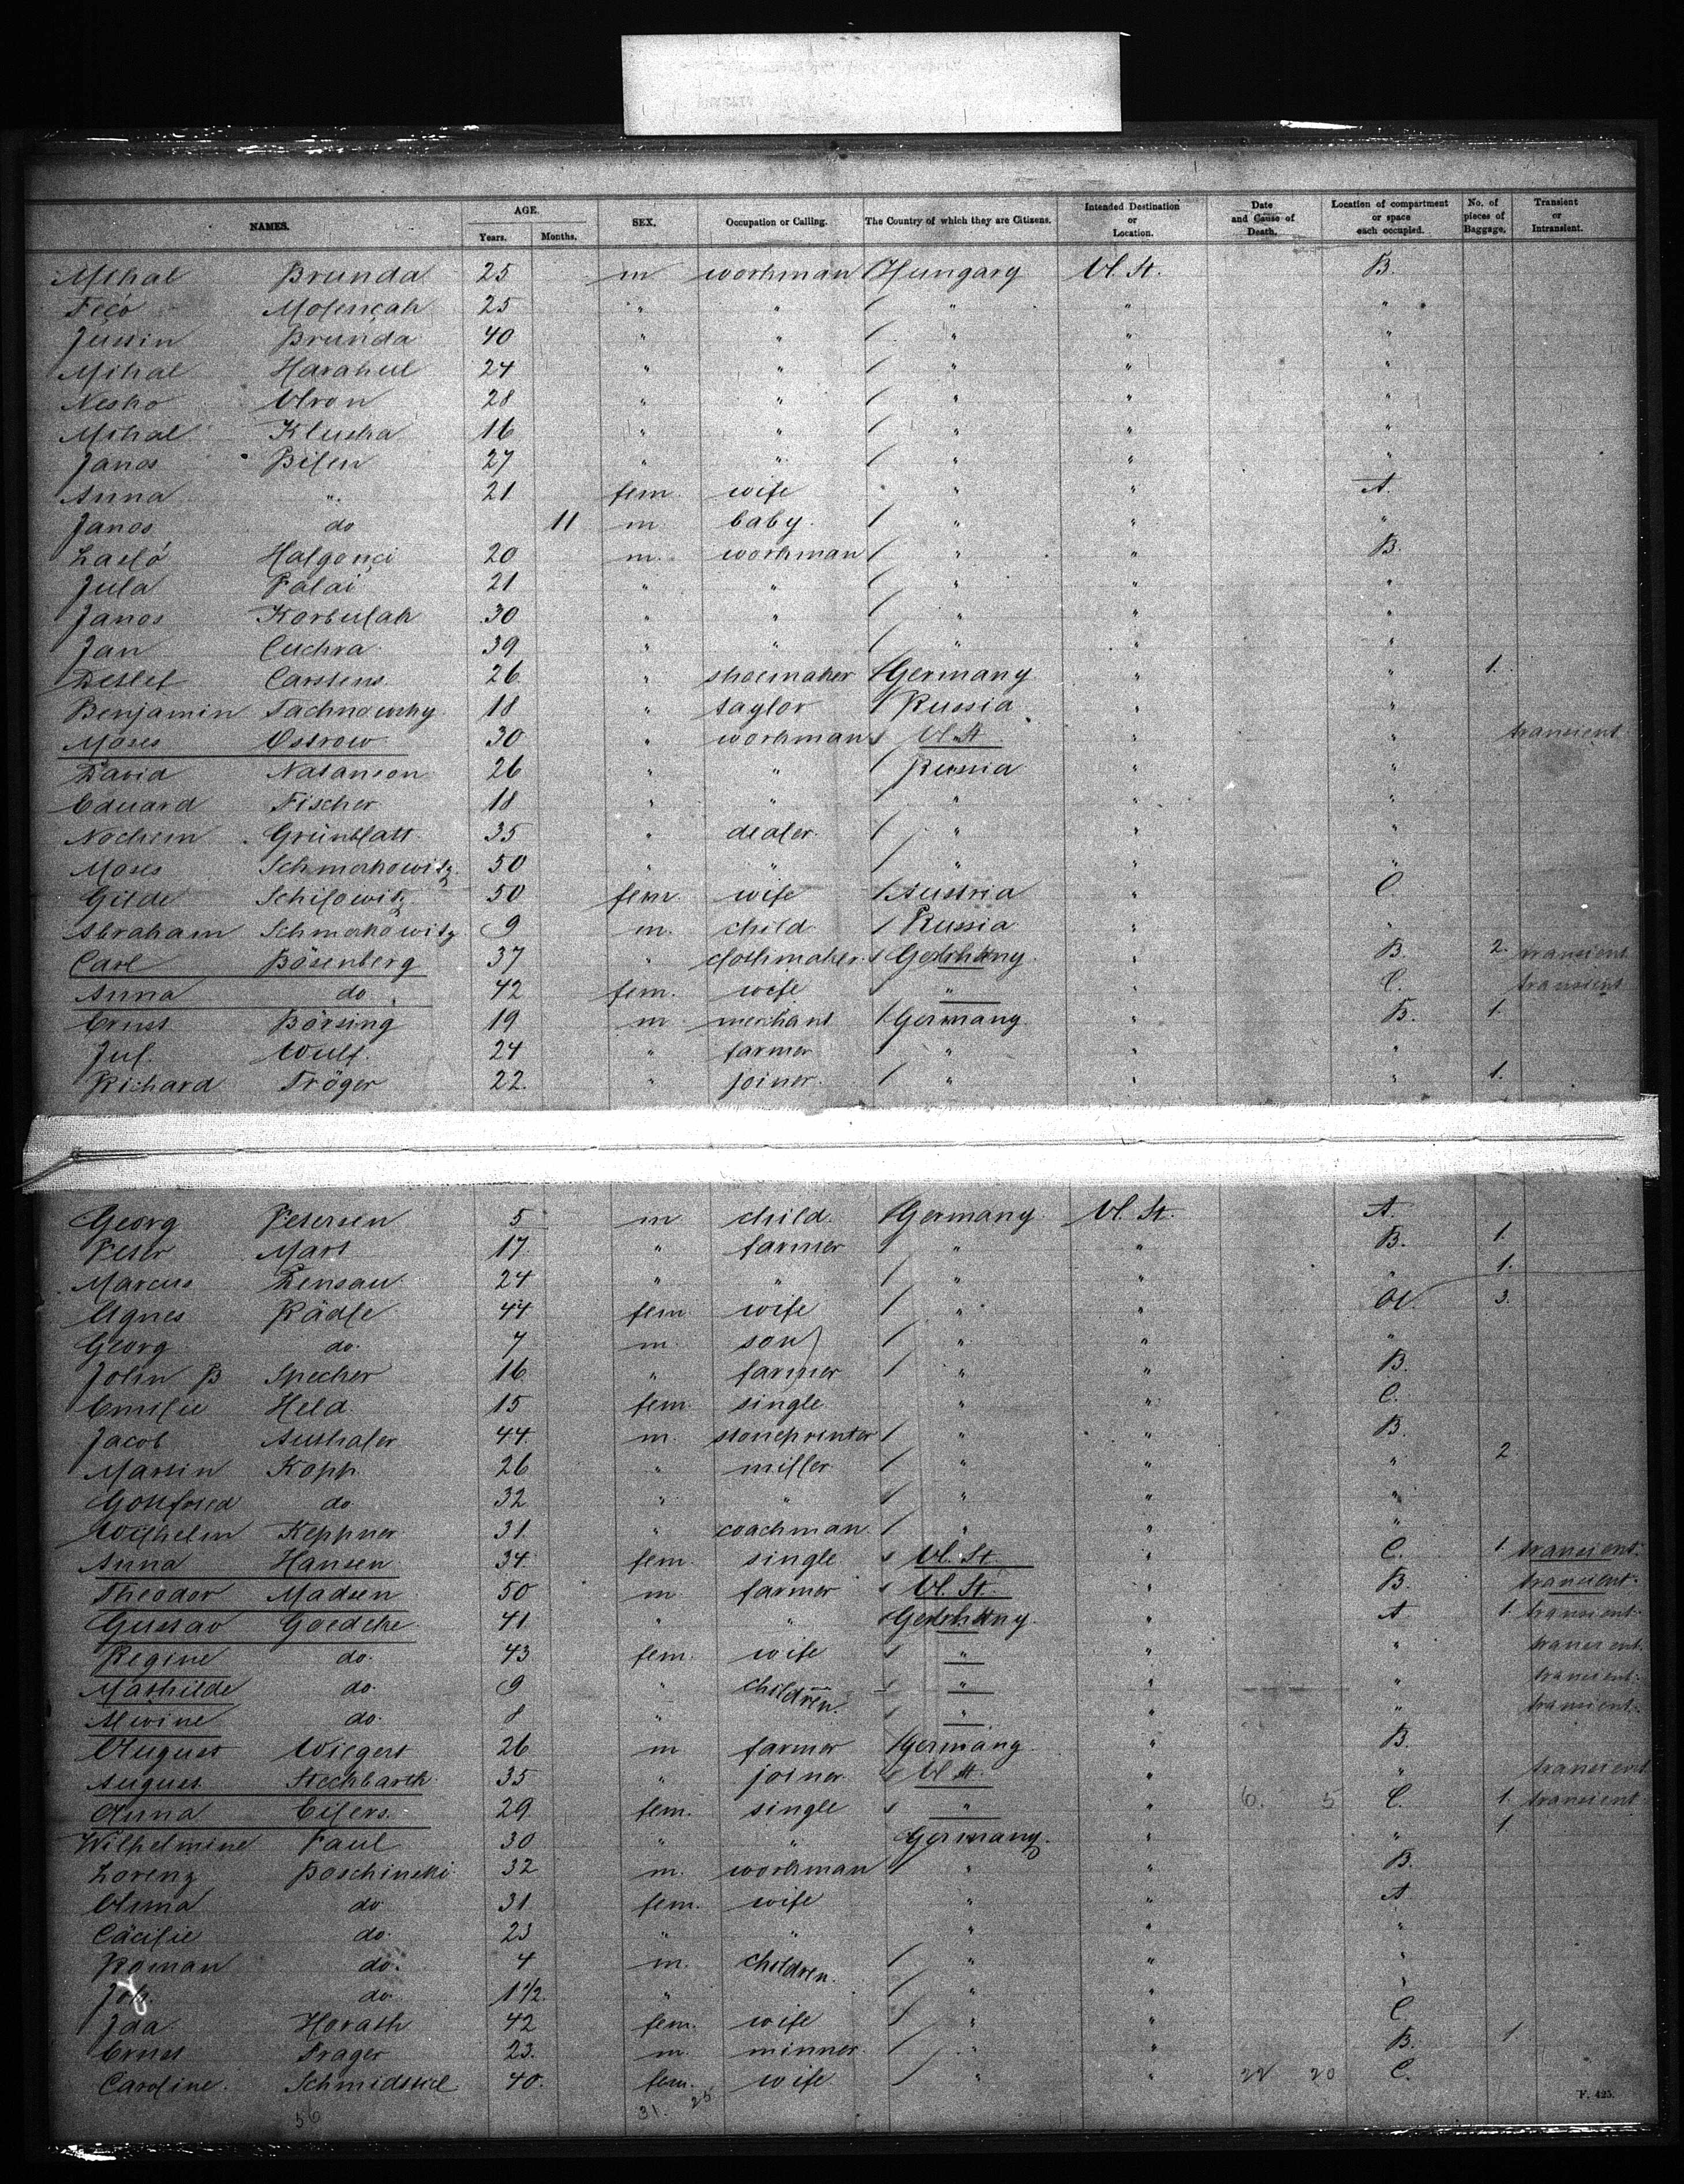 NAMES. AGE. Years. Months. SEX. Occupation or Calling. The Country of which they are Citizens. Intended Destination or Location. Date and Cause of Death. Location of compartment or space each occupied. No. of pieces of Baggage. Transient or Intransient.
Mihal Brunda 25 m workman Hungary U. St. B.
25 " " " " "
Brunda 40 " " " " "
Mihal Harahul 24 " " " " "
28 " " " " "
Mihal Kluska 16 " " " " "
Janos Bilen 27 " " " " "
Anna " 21 fem. wife " " A.
Janos do 11 m. baby. " " "
20 m. workman " " B.
Jula Palai 21 " " " " "
Janos Korbulak 30 " " " " "
Jan Cuchra 39 " " " " "
Detlef Carstens 26 " shoemaker Germany " " 1.
Benjamin Tachnowsky 18 " taylor Russia " "
Moses Ostrow 30 " workman U. St. " " transient
David Natanson 26 " " Russia " "
Eduard Fischer 18 " " " " "
Nochem Grünblatt 35 " dealer. " " "
Moses Schmerkowitz 50 " " " " "
Gilde Schilowitz 50 fem wife Austria " C.
Abraham Schmerkowitz 9 m. child Russia " "
Carl Bösenberg 37 " clothmaker. " B. 2. transient
Anna do 42 fem. wife " " C. transient
Ernst Börsing 19 m merchant Germany. " B. 1.
Jul. Wulf. 24 " farmer " " "
Richard Tröger 22. " joiner. " " " 1.
Georg Petersen 5 m child. Germany. U. St. A.
Peter Mart 17. " farmer " " B. 1.
Marcus Densau 24 " " " " " 1.
Agnes Rädle 44 fem wife " " 3.
Georg do. 7 m. son " " "
John B Specher 16 " farmer " " B.
Emilie Held. 15 fem. single " " C.
Jacob Authaler 44. m. stoneprinter " " B.
Martin Kopp 26 " miller " " " 2
Gottfried do 32 " " " " "
Wilhelm Keppner 31. " coachman. " " "
Anna Hansen 34. fem. single U. St. " C. 1. transient.
Theodor Madsen 50 m. farmer U. St. " B. transient.
Gustav Goedeke 41 " " " A 1. transient.
Regine do. 43 fem. wife " " " transient.
Mathilde do. 9 " children. " " " transient.
Alwine do. 8 " " " " transient.
August Wiegert 26 m farmer Germany. " B.
August Stechbarth 35 " joiner U. St. " " transient
Anna Eilers. 29 fem. single " " 6. 5 C. 1. transient
Wilhelmine Paul 30 " " Germany. " " 1
Lorenz Boschinski 32 m. workman " " B.
do 31 fem. wife " " A
Cäcilie do. 23 " " " " "
Roman do. 4 m. children. " " "
Joh. do. 1 1/2. " " " "
Ida Horath 42 fem. wife " " C
Ernst Trager 23. m. minner " " B. 1.
Caroline. 40. fem. wife " " 22 20 C.
56 31. 25
F. 425.